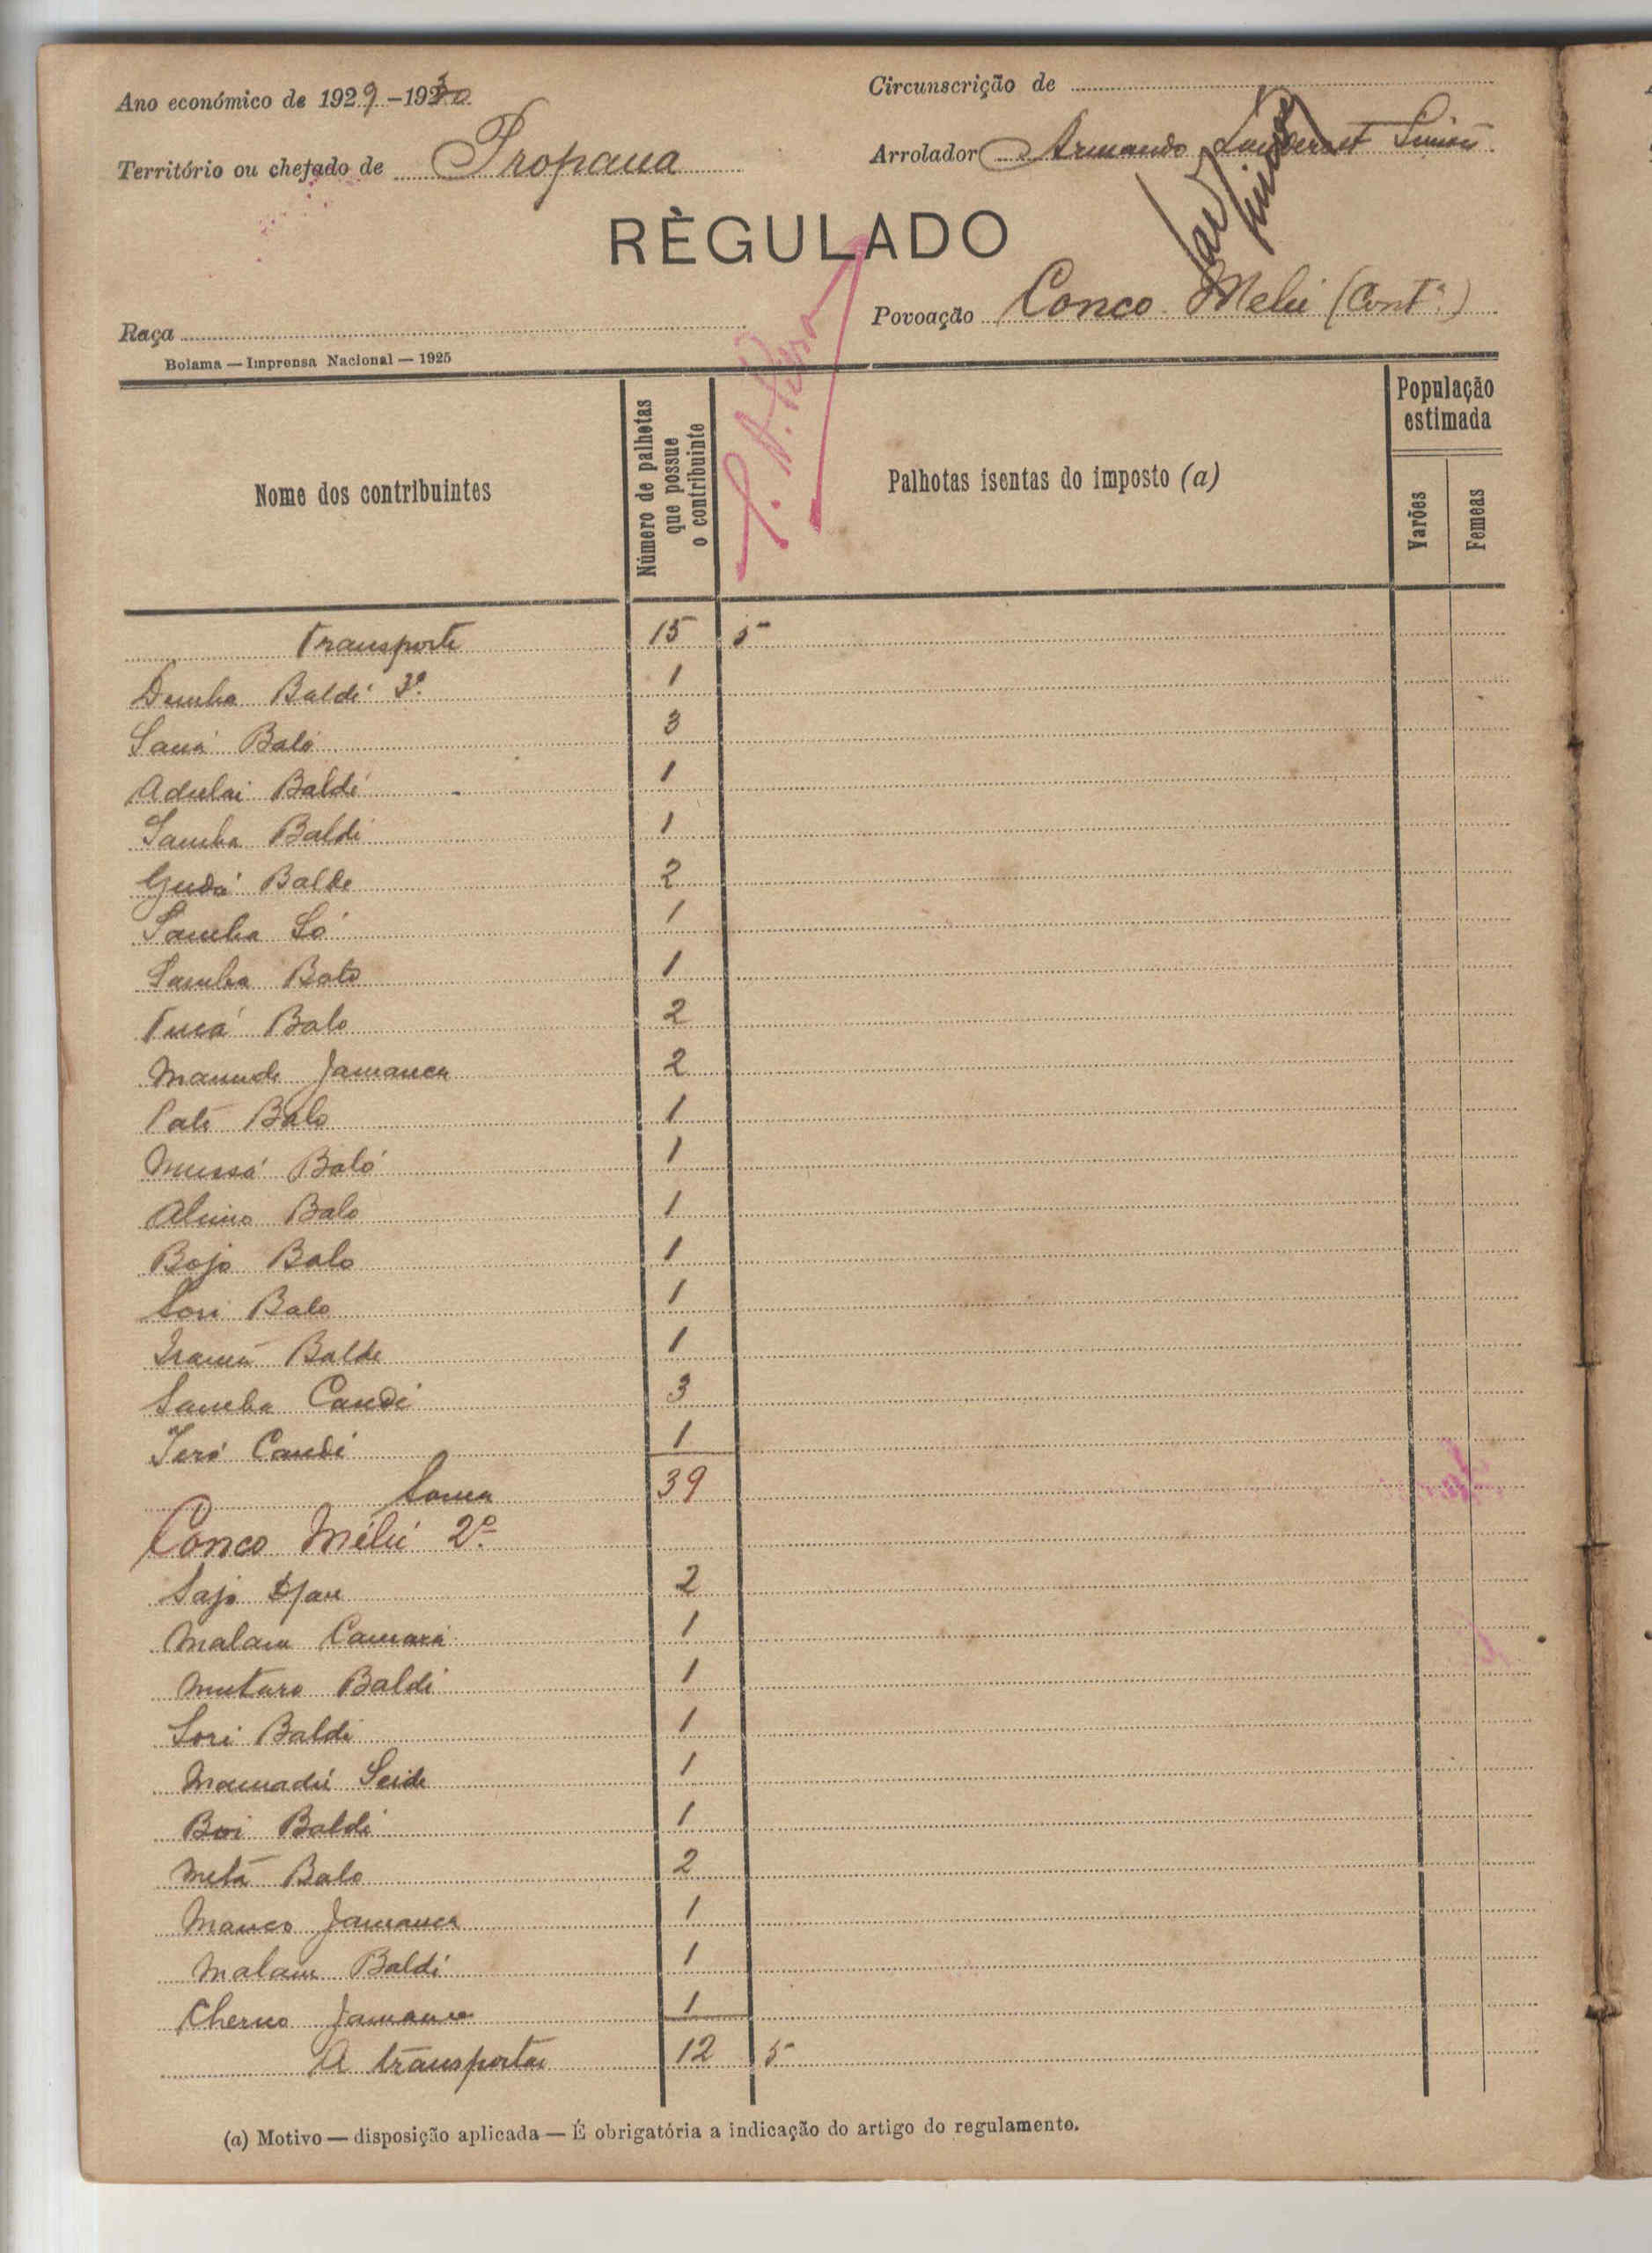 Ano económico de 1929-1930
Circunscrição de
Território ou chefado de Propana
Arrolador Armando
RÈGULADO
Povoação Conco Melú (Contº)
Raça
Bolama — Imprensa Nacional — 1925
Nome dos contribuintes
Número de palhotas que possue o contribuinte
Palhotas isentas do imposto (a)
População estimada
Varões
Femeas
Transporte 15 5
Demba Baldé 3º 1
Saná Baló 3
Adulai Baldé 1
Samba Baldé 1
Gudá Balde 2
Samba Só 1
Samba Balo 1
Balo 2
Mamude Jamanca 2
Paté Balo 1
Mussá Baló 1
Alimo Balo 1
Bojo Balo 1
Sori Balo 1
Iramã Balde 1
Samba Candé 3
Jeró Candé 1
Soma 39
Conco Mélú 2º
Sajo Djau 2
Malam Camará 1
Mutaro Baldé 1
Sori Baldé 1
Mamadú Seide 1
Boi Baldé 1
Metá Balo 2
Manco Jamanca 1
Malam Baldé 1
Cherno Jamanca 1
A transportar 12 5
(a) Motivo — disposição aplicada — É obrigatória a indicação do artigo do regulamento.